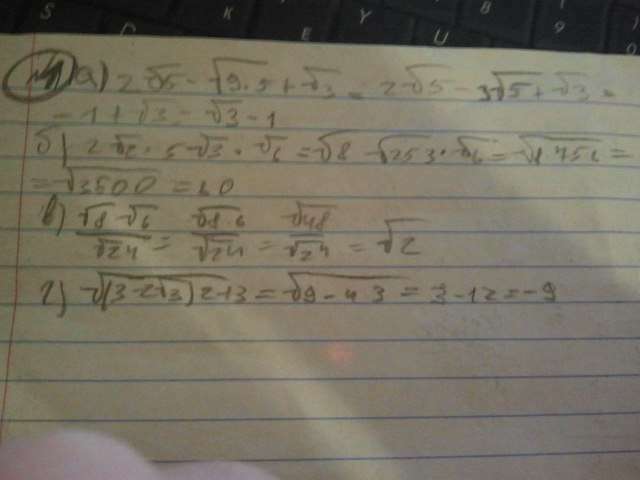 а) 2√5 - √9·5 + √3 = 2√5 - 3√5 + √3 =
- 1 + √3 = √3 - 1
б) 2√2 · 5√3 · √6 = √8 · √25 3 · √6 =
= √3500 = 60
в) √8·√6/√24 = √8·6/√24 = √48/√24 = √2
г) √(3-2√3)2+3 = √9-4 3 = 3-12 = -9